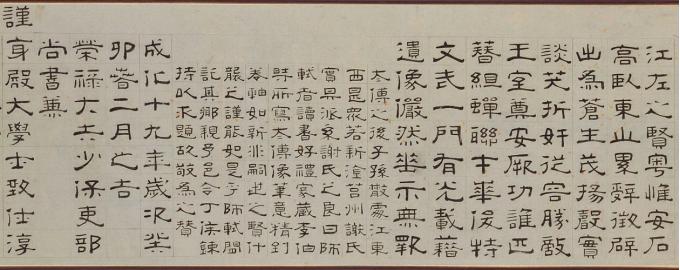 江左之賢粵惟安石
高臥東山累辭徵辟
出為蒼生茂揚聲實
談笑折奸從容勝敵
王室奠安厥功誰匹
簪組蟬聯才華俊特
文武一門有光載藉
遺像儼然垂示無斁
太傅之後子孫散處江東
西是眾若新淦莒州謝氏
實其派系謝氏之良曰師
軾者讀書好禮家藏李伯
時所寫太傅像筆意精到
卷軸如新非嗣世之賢什
襲之謹能如是乎師軾間
託其鄉親予邑令丁侯鍊
持以求題故敬為之贊
成化十九年歲次癸
卯春二月之吉
榮祿大夫少保吏部
尚書兼
謹身殿大學士致仕淳